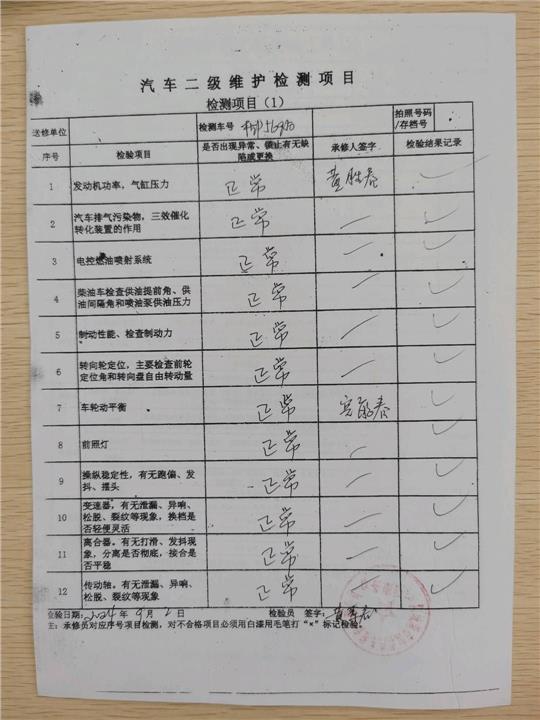 汽车二级维护检测项目
检测项目（1）
送修单位 检测车号 拍照号码/存档号
序号 检验项目 是否出现异常、锁止有无缺陷或更换 承修人签字 检验结果记录
1 发动机功率，气缸压力 正常
2 汽车排气污染物，三效催化转化装置的作用 正常 —
3 电控燃油喷射系统 正常 —
4 柴油车检查供油提前角、供油间隔角和喷油泵供油压力 正常 —
5 制动性能、检查制动力 正常 —
6 转向轮定位，主要检查前轮定位角和转向盘自由转动量 正常 —
7 车轮动平衡 正常
8 前照灯 正常 —
9 操纵稳定性，有无跑偏、发抖、摆头 正常 —
10 变速器，有无泄漏、异响、松脱、裂纹等现象，换档是否轻便灵活 正常 —
11 离合器，有无打滑、发抖现象，分离是否彻底，接合是否平稳 正常 —
12 传动轴，有无泄漏、异响、松脱、裂纹等现象 正常
检验日期：2024年9月2日 检验员 签字：
主：承修员对应序号项目检测，对不合格项目必须用白漆用毛笔打“×”标记检验。